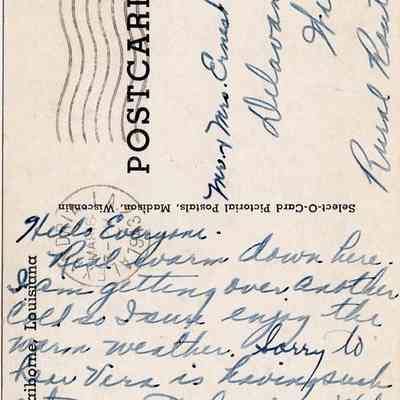 POSTCARD
Mr. & Mrs. Ernest
Delavan
Rural Rout
Select-O-Card Pictorial Postals, Madison, Wisconsin
aiborne, Louisiana
Hello Everyone.
Real warm down here.
I am getting over another
cold so I sure enjoy the
warm weather. Sorry to
hear Vera is having such